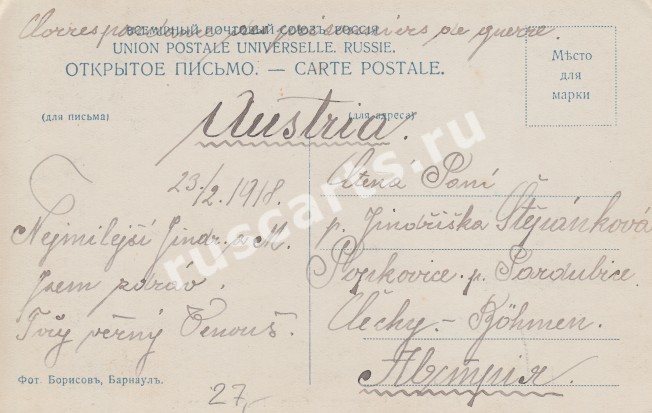 Correspondance des prisonniers de guerre.
ВСЕМІРНЫЙ ПОЧТОВЫЙ СОЮЗЪ. РОССІЯ
UNION POSTALE UNIVERSELLE. RUSSIE.
ОТКРЫТОЕ ПИСЬМО. — CARTE POSTALE.
Мѣсто
для
марки
(для письма)
(для адреса)
Austria.
23./2. 1918.
Nejmilejší Jindr. a M.
Jsem zdráv.
Tvůj věrný Venouš.
Ctená Paní
p. Jindřiška Štěpánková
Popkovice. p. Pardubice.
Čechy. - Böhmen.
Австрія.
Фот. Борисовъ, Барнаулъ.
27,-
ruscarts.ru